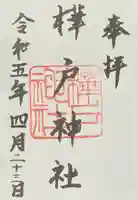 奉拝
樺戸神社
令和五年四月二十二日